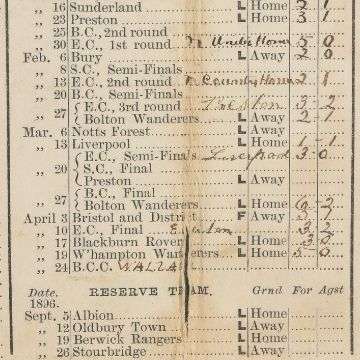 „ 16 Sunderland L Home 2 1
„ 23 Preston L Home 3 1
„ 25 B.C., 2nd round
„ 30 E.C., 1st round Home 5 0
Feb. 6 Bury L Away 2 0
„ 8 S.C., Semi-Finals
„ 13 E.C., 2nd round n County Home 2 1
„ 20 B.C., Semi-Finals
„ 27 { E.C., 3rd round Preston 3-2
Bolton Wanderers L Away 2-1
Mar. 6 Notts Forest L Away
„ 13 Liverpool L Home 1-1
„ 20 { E.C., Semi-Finals Liverpool 3-0
S.C., Final
Preston L Away
„ 27 { B.C., Final
Bolton Wanderers L Home 6-2
April 3 Bristol and District F Away
„ 10 E.C., Final Everton 3 2
„ 17 Blackburn Rovers L Home 3 0
„ 19 W'hampton Wanderers L Home 5-0
„ 24 B.C.C. WALSA
Date. RESERVE TEAM. Grnd For Agst
1896.
Sept. 5 Albion L Home
„ 12 Oldbury Town L Away
„ 19 Berwick Rangers L Home
„ 26 Stourbridge L Away